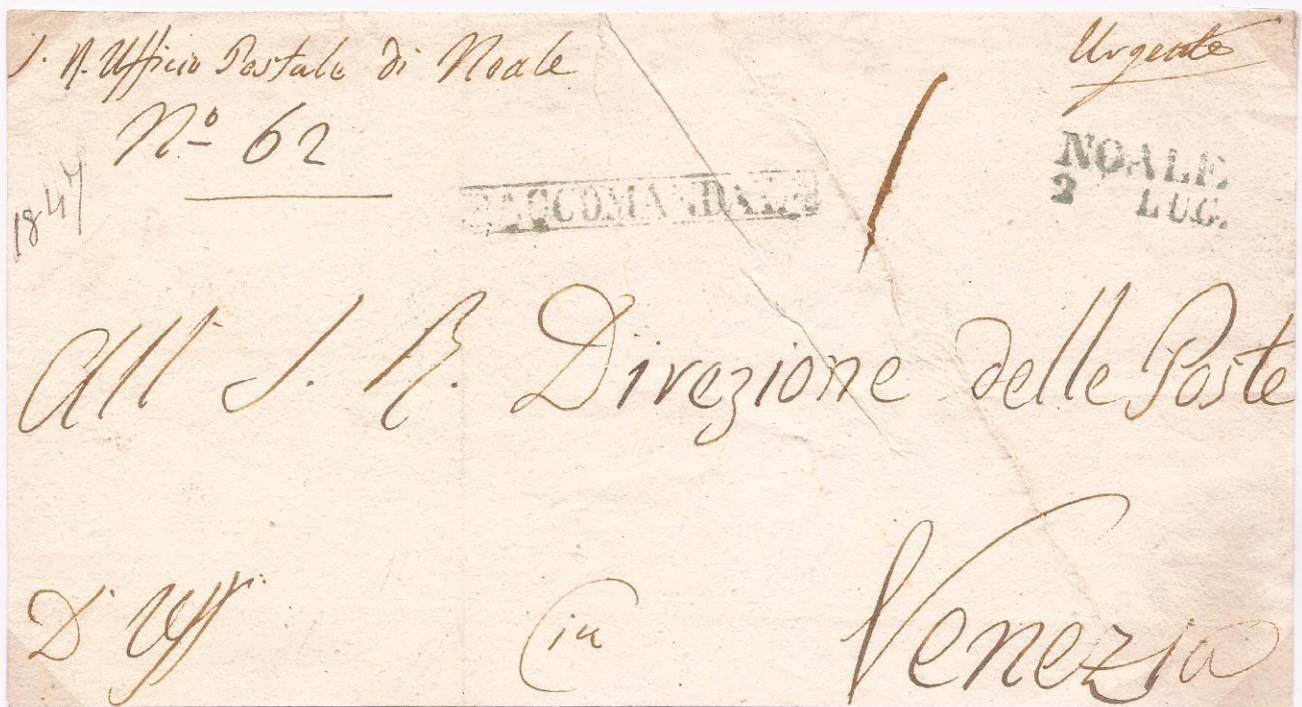 I. R. Ufficio Postale di Noale
Urgente
Nº 62
1847
RACCOMANDATA
NOALE
2 LUG.
All' I. R. Direzione delle Poste
D' Uff:
in
Venezia